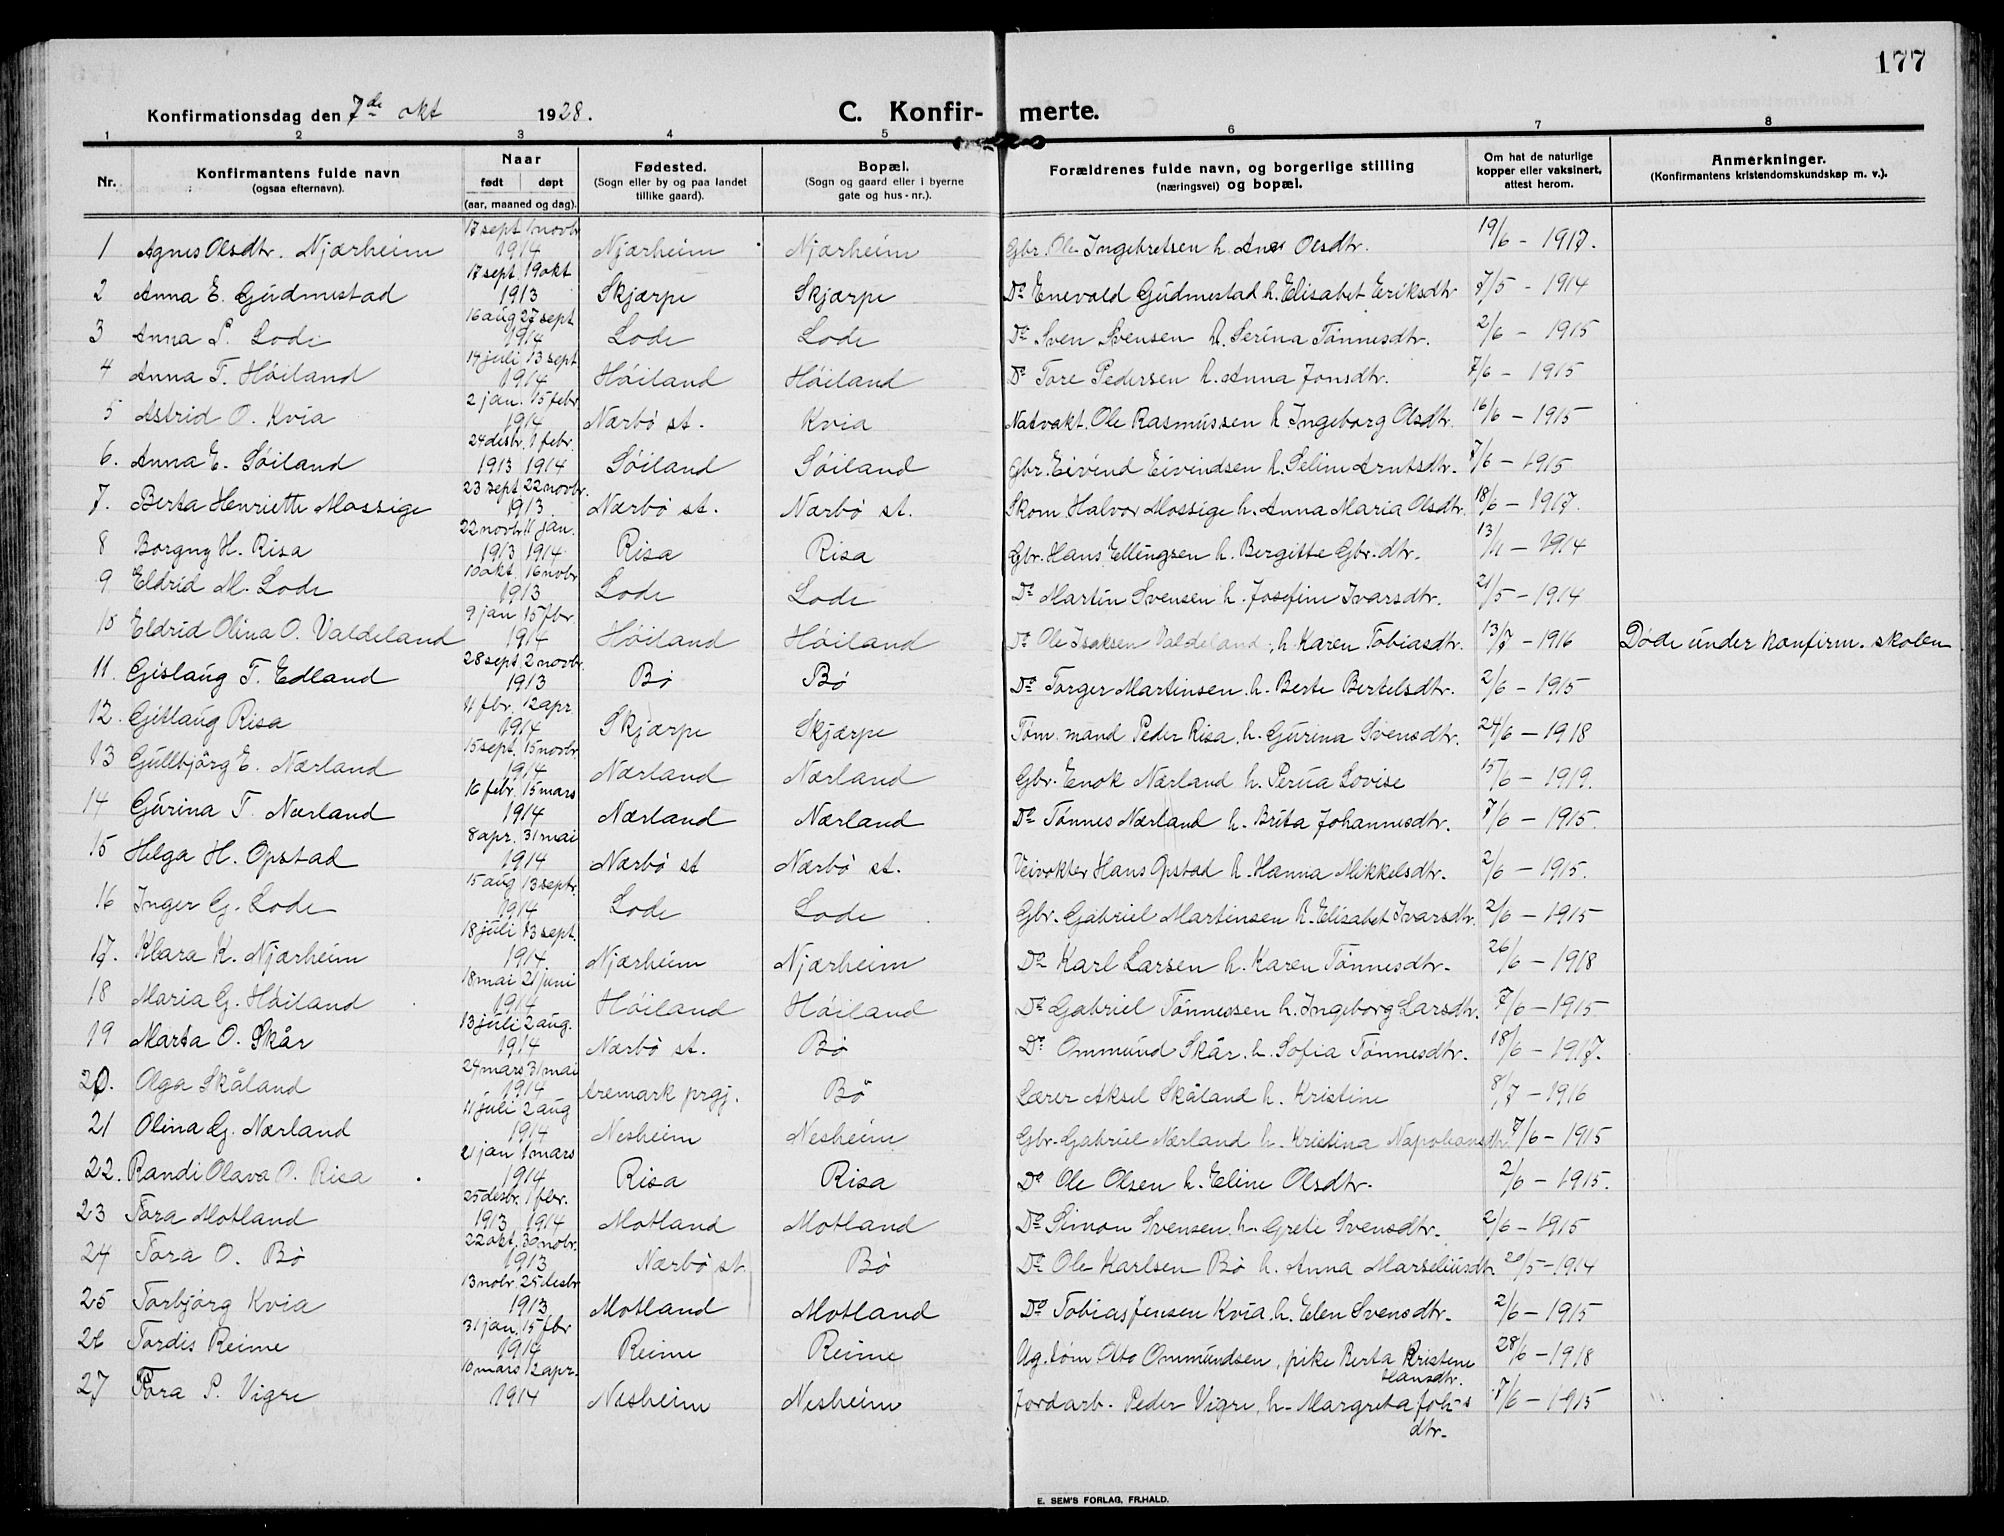 177
Konfirmationsdag den 7de okt 1928. C. Konfir- merte.
1 2 3 4 5 6 7 8
Nr. Konfirmantens fulde navn (ogsaa efternavn). Naar født døpt (aar, maaned og dag). Fødested. (Sogn eller by og paa landet tillike gaard). Bopæl. (Sogn og gaard eller i byerne gate og hus-nr.). Forældrenes fulde navn, og borgerlige stilling (næringsvei) og bopæl. Om hat de naturlige kopper eller vaksinert, attest herom. Anmerkninger. (Konfirmantens kristendomskundskap m. v.).
1 Agnes Olsdtr. Njærheim 17 sept. 1 novbr 1914 Njærheim Njærheim Gbr. Ole Ingebretsen h. Olsdtr. 19/6 - 1917.
2 Anna E. Gudmestad 17 sept. 19 okt 1913 Skjærpe Skjærpe Do Enevald Gudmestad h. Elisabet Eriksdtr 7/5 - 1914
3 Anna S. Lode 16 aug 27 sept 1914 Lode Lode Do Sven Svensen h. Serina Tønnesdtr. 2/6 - 1915
4 Anna T. Høiland 14 juli 13 sept 1914 Høiland Høiland Do Tore Pedersen h. Anna Jonsdtr. 7/6 - 1915
5 Astrid O. Kvia 2 jan. 15 febr 1914 Nærbø st. Kvia Natvakt. Ole Rasmussen h Ingeborg Olsdtr. 16/6 - 1915
6. Anna E. Søiland 24 desbr. 1 febr. 1913 1914 Søiland Søiland Gbr. Eivind Eivindsen h. Selim Arntsdtr. 7/6 - 1915
7. Berta Henriette Mossige 23 sept 22 novbr. 1913 Nærbø st. Nærbø st. Skom Halvor Mossige h. Anna Maria Olsdtr. 18/6 - 1917.
8 Borgny H. Risa 22 novbr 11 jan. 1913 1914 Risa Risa Gbr. Hans Ellingsen h. Bergitte Gbr. dtr. 13/11 - 1914
9 Eldrid M. Lode 10 okt. 16 novbr 1913 Lode Lode Do Martin Svensen h. Josefine Ivarsdtr. 21/5 - 1914
10 Eldrid Olina O. Valdeland 9 jan 15 fbr. 1914 Høiland Høiland Do Ole Isaksen Valdeland, h Karen Tobiasdtr. 13/7 - 1916 Døde under konfirm. skolen
11. Gislaug T. Edland 28 sept. 2 novbr. 1913 Bø Bø Do Torger Martinsen h. Berte Bertelsdtr. 2/6 - 1915
12. Gitlaug Risa 4 fbr. 12 apr. 1914 Skjærpe Skjærpe Tøm. mand Peder Risa, h. Gurina Svensdtr. 24/6 - 1918
13 Gullbjörg E. Nærland 15 sept. 15 novbr. 1914 Nærland Nærland Gbr. Enok Nærland h. Lovise 15/6 - 1919.
14 Gurina T. Nærland 16 febr. 15 mars 1914 Nærland Nærland Do Tønnes Nærland h. Brita Johannesdtr. 7/6 - 1915.
15 Helga H. Opstad 8 apr. 31 mai 1914 Nærbø st Nærbø st. Veivokter Hans Opstad h. Hanna Mikkelsdtr. 2/6 - 1915.
16 Inger G. Lode 15 aug 13 septr. 1914 Lode Lode Gbr. Gabriel Martinsen h. Elisabet Ivarsdtr. 2/6 - 1915
17. Klara K. Njærheim 18 juli 13 sept. 1914 Njærheim Njærheim Do Karl Larsen h. Karen Tønnesdtr. 26/6 - 1918
18 Maria G. Høiland 18 mai 21 juni 1914 Høiland Høiland Do Gabriel Tønnessen h. Ingeborg Larsdtr. 7/6 - 1915
19 Marta O. Skår 13 juli 2 aug. 1914 Nærbø st. Bø Do Ommund Skår h. Sofia Tønnesdtr. 18/6 - 1917.
20. Olga Skåland 24 mars 31 mai 1914 Aremark prgj. Bø Lærer Aksel Skåland h. Kristine 8/7 - 1916
21 Olina G. Nærland 11 juli 2 aug 1914 Nesheim Nesheim Gbr. Gabriel Nærland h. Kristina Napoleonsdtr. 7/6 - 1915
22. Randi Olava O. Risa 21 jan 1 mars 1914 Risa Risa Do Ole Olsen h. Eline Olsdtr. 2/6 - 1915.
23 Tora Motland 25 desbr. 1 fbr. 1913 1914 Motland Motland Do Simon Svensen h. Grete Svensdtr. 2/6 - 1915
24 Tora O. Bø 22 okt. 30 nobr. 1913 Nærbø st. Bø Do Ole Karlsen Bø h. Anna Marseliusdtr. 20/5 - 1914
25 Torbjørg Kvia 13 nobr. 25 desbr 1913 Motland Motland Do Tobias Jensen Kvia, h. Elen Svensdtr. 2/6 - 1915
26 Tordis Reime 31 jan. 15 fbr 1914 Reime Reime Ug. tøm Otto Ommundsen, pike Berta Kristene Hansdtr. 28/6 - 1918
27 Tora P. Vigre 10 mars 12 apr. 1914 Nesheim Nesheim Jordarb. Peder Vigre, h. Margreta Joh-s dtr. 7/6 - 1915
E. SEM'S FORLAG, FR.HALD.